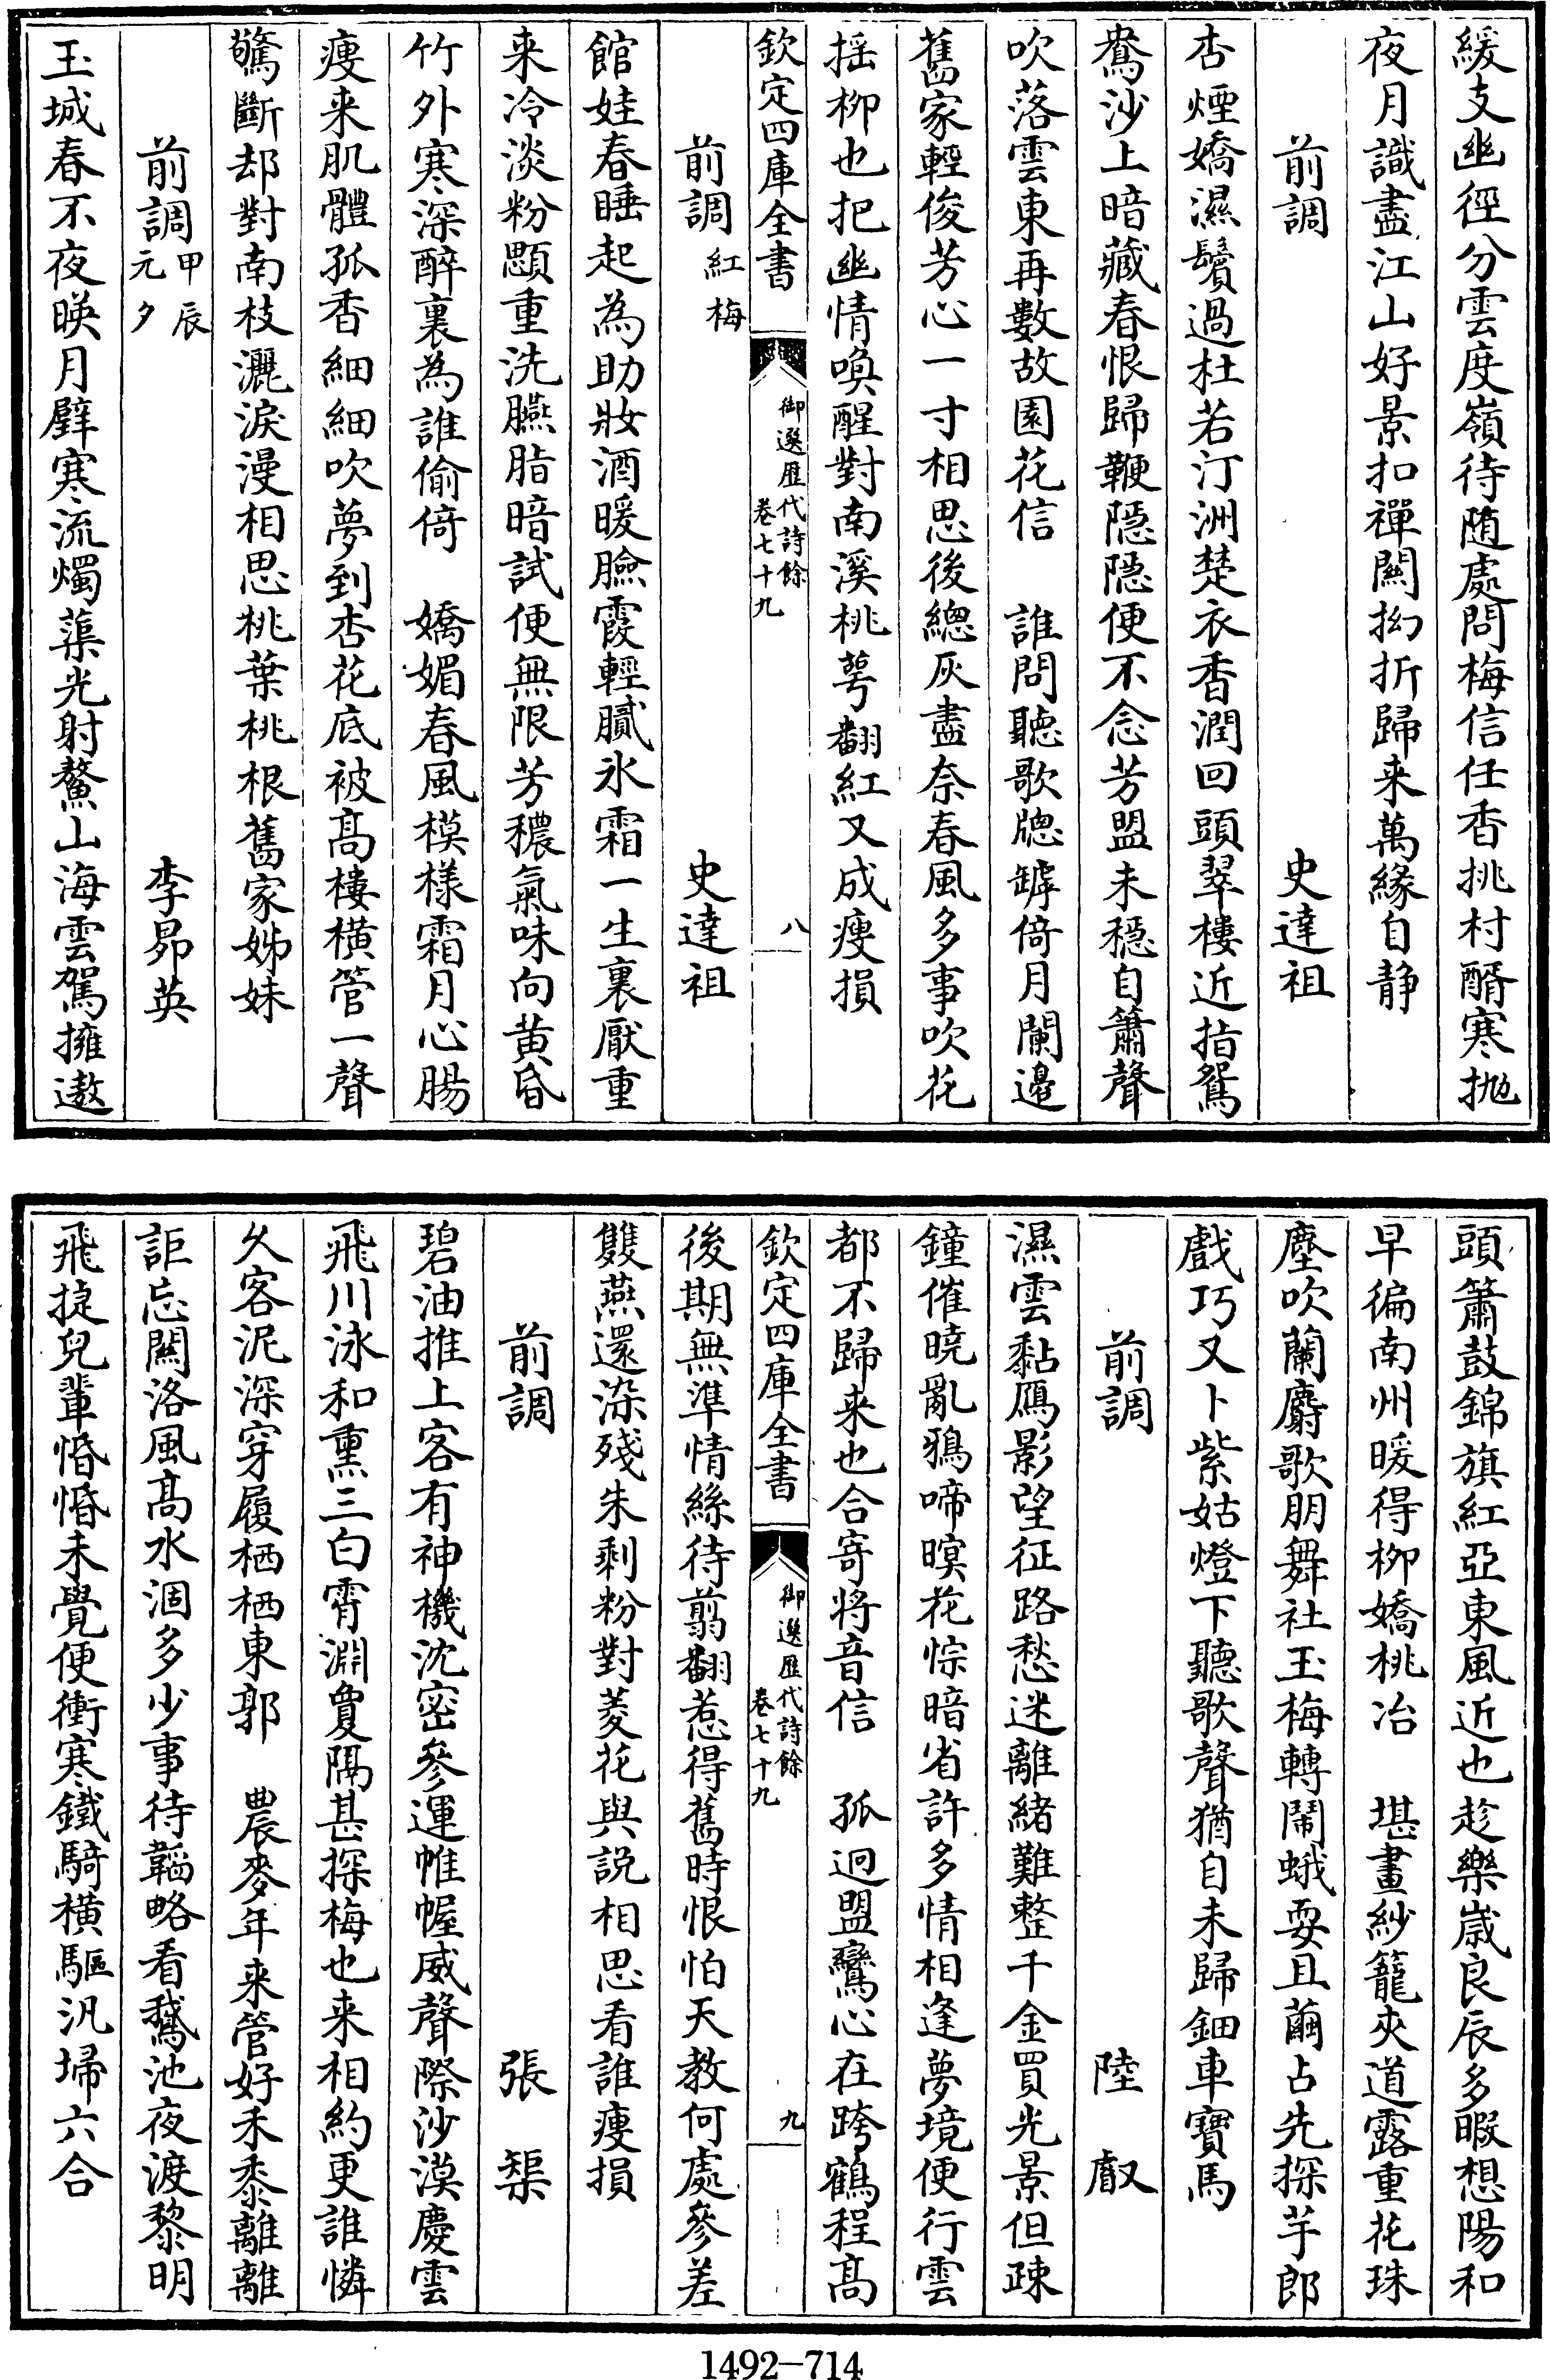 緩支幽徑分雲度嶺待随處問梅信任香挑村醑寒抛
夜月識盡江山好景扣禪關拗折歸来萬緣自静
前調　史達祖
杏煙嬌濕鬢過杜若汀洲楚衣香潤回頭翠樓近指鴛
鴦沙上暗藏春恨歸鞭隱隱便不念芳盟未穩自簫聲
吹落雲東再數故園花信　誰問聽歌牕罅倚月闌邊
舊家輕俊芳心一寸相思後總灰盡奈春風多事吹花
揺柳也把幽情喚醒對南溪桃萼翻紅又成瘦損
欽定四庫全書　御選歷代詩餘　卷七十九　八
前調　紅梅　史達祖
館娃春睡起為助妝酒暖臉霞輕膩氷霜一生裏厭重
来冷淡粉顋重洗臙脂暗試便無限芳穠氣味向黄昏
竹外寒深醉裏為誰偷倚　嬌媚春風模樣霜月心腸
瘦来肌體孤香細細吹夢到杏花底被髙樓横管一聲
驚斷却對南枝灑淚漫相思桃葉桃根舊家姊妹
前調　甲辰元夕　李昴英
玉城春不夜暎月璧寒流燭蕖光射鰲山海雲駕擁遨
頭簫鼓錦旗紅亞東風近也趁樂嵗良辰多暇想陽和
早徧南州暖得柳嬌桃冶　堪畫紗籠夾道露重花珠
塵吹蘭麝歌朋舞社玉梅轉鬧蛾耍且繭占先探芋郎
戲巧又卜紫姑燈下聽歌聲猶自未歸鈿車寶馬
前調　陸叡
濕雲黏鴈影望征路愁迷離緒難整千金買光景但疎
鐘催曉亂鴉啼暝花悰暗省許多情相逢夢境便行雲
都不歸来也合寄將音信　孤迥盟鸞心在跨鶴程髙
欽定四庫全書　御選歷代詩餘　卷七十九　九
後期無準情絲待翦翻惹得舊時恨怕天教何處參差
雙燕還染殘朱剩粉對菱花與說相思看誰瘦損
前調　張榘
碧油推上客有神機沈密參運帷幄威聲際沙漠慶雲
飛川泳和熏三白霄淵敻隔甚探梅也来相約更誰憐
久客泥深穿履栖栖東郭　農麥年来管好禾黍離離
詎忘關洛風髙水涸多少事待韜略看鵞池夜渡黎明
飛捷兒輩惛惛未覺便衝寒鐵騎横驅汎埽六合
1492—714